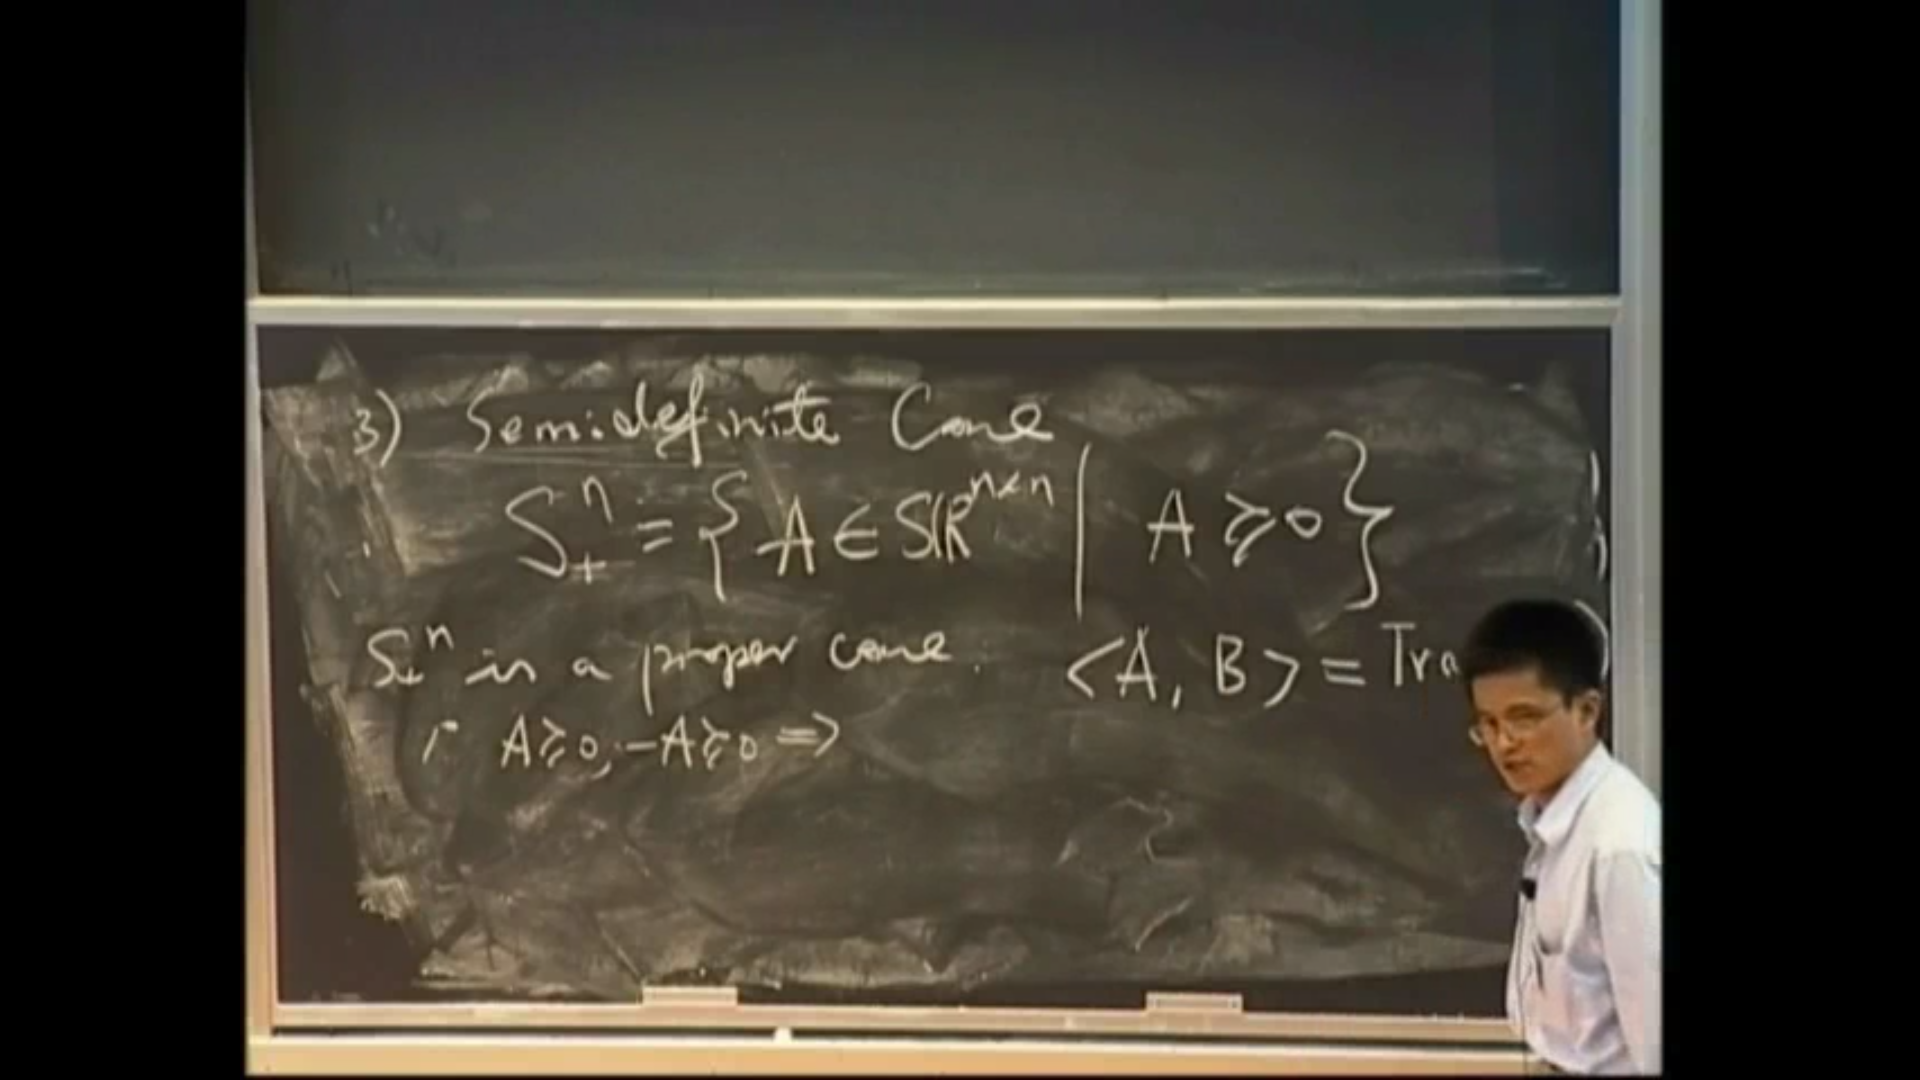 3) Semidefinite Cone
S₊ⁿ = { A ∈ SRⁿˣⁿ | A ≽ 0 }
S₊ⁿ is a proper cone. <A, B> = Tra
A ≽ 0, -A ≽ 0 ⇒